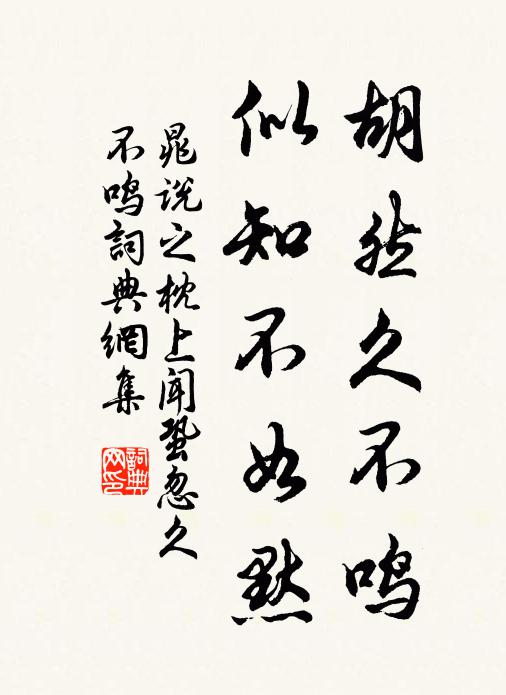 胡然久不鸣
似知不如默
晁说之枕上闻蛩忽久
不鸣詞典網集
詞典
网印